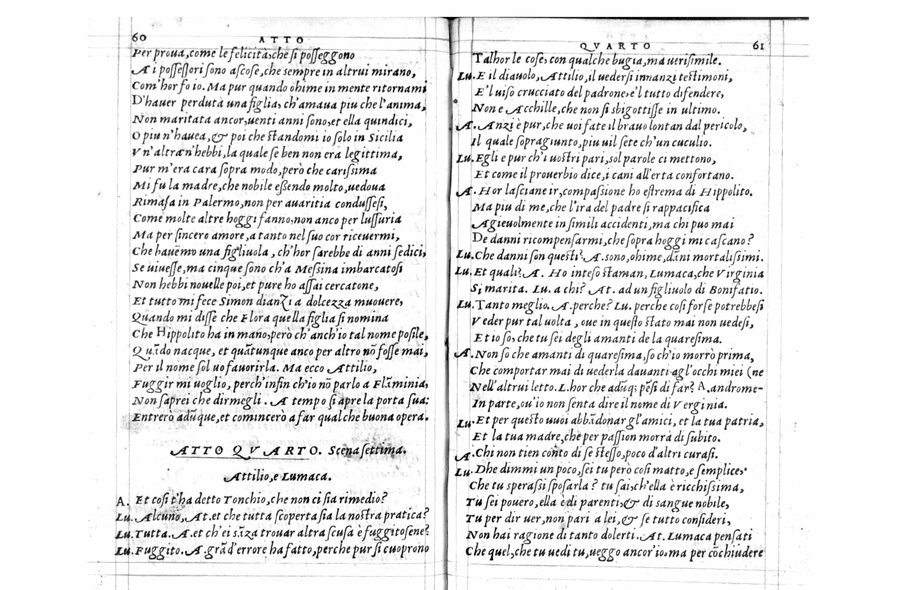 60
ATTO
Per proua, come le felicità, che si posseggono
A i possessori sono ascose, che sempre in altrui mirano,
Com'hor fo io. Ma pur quando ohime in mente ritornami
D'hauer perduta una figlia, ch'amaua piu che l'anima,
Non maritata ancor, uenti anni sono, et ella quindici,
O piu n'hauea, & poi che standomi io solo in Sicilia
Vn'altra n'hebbi, la quale se ben non era legittima,
Pur m'era cara sopra modo, però che carissima
Mi fu la madre, che nobile eßendo molto, uedoua
Rimasa in Palermo, non per auaritia condussesi,
Come molte altre hoggi fanno, non anco per lussuria
Ma per sincero amore, a tanto nel suo cor riceuermi,
Che hauemo una figliuola, ch'hor sarebbe di anni sedici,
Se uiuesse, ma cinque sono ch'a Messina imbarcatosi
Non hebbi nouelle poi, et pure ho assai cercatone,
Et tutto mi fece Simon dianzi a dolcezza muouere,
Quando mi disse che Flora quella figlia si nomina
Che Hippolito ha in mano, però ch'anch'io tal nome posile,
Quãdo nacque, et quãtunque anco per altro nõ fosse mai,
Per il nome sol uo fauorirla. Ma ecco Attilio,
Fuggir mi uoglio, perch'infin ch'io nõ parlo a Flãminia,
Non saprei che dirmegli. A tempo si apre la porta sua:
Entrerò adũque, et comincerò a far qualche buona opera.
ATTO QVARTO. Scena settima.
Attilio, e Lumaca.
A. Et così t'ha detto Tonchio, che non ci sia rimedio?
Lu. Alcuno, At. et che tutta scoperta sia la nostra pratica?
Lu. Tutta. A. et ch'ei sãza trouar altra scusa è fuggitosene?
Lu. Fuggito. A. grã d'errore ha fatto, perche pur si cuoprono
QVARTO
61
Talhor le cose, con qualche bugia, ma uerisimile.
Lu. E il diauolo, Attilio, il uedersi innanzi testimoni,
E'l uiso crucciato del padrone, e'l tutto difendere,
Non e Acchille, che non si sbigottisse in ultimo.
A. Anzi è pur, che uoi fate il brauo lontan dal pericolo,
Il quale sopragiunto, piu uil sete ch'un cuculio.
Lu. Egli e pur ch'i uostri pari, sol parole ci mettono,
Et come il prouerbio dice, i cani all'erta confortano.
A. Hor lasciane ir, compassione ho estrema di Hippolito.
Ma piu di me, che l'ira del padre si rappacifica
Ageuolmente in simili accidenti, ma chi puo mai
De danni ricompensarmi, che sopra hoggi mi cascano?
Lu. Che danni son questi? A. sono, ohime, dãni mortalissimi.
Lu. Et quali? A. Ho inteso staman, Lumaca, che Virginia
Si marita. Lu. a chi? At. ad un figliuolo di Bonifatio.
Lu. Tanto meglio. A. perche? Lu. perche cosi forse potrebbesi
Veder pur tal uolta, oue in questo stato mai non uedesi,
Et io so, che tu sei degli amanti de la quaresima.
A. Non so che amanti di quaresima, so ch'io morrò prima,
Che comportar mai di uederla dauanti agl'occhi miei (ne
Nell'altrui letto. L. hor che adũq; pẽsi di far? A. androme-
In parte, ou'io non senta dire il nome di Verginia.
Lu. Et per questo uuoi abbãdonar gl'amici, et la tua patria,
Et la tua madre, che per passion morrà di subito.
A. Chi non tien conto di se stesso, poco d'altri curasi.
Lu. Dhe dimmi un poco, sei tu però così matto, e semplice,
Che tu sperassi sposarla? tu sai, ch'ella è ricchissima,
Tu sei pouero, ella è di parenti, & di sangue nobile,
Tu per dir uer, non pari a lei, & se tutto consideri,
Non hai ragione di tanto dolerti. At. Lumaca pensati
Che quel, che tu uedi tu, ueggo ancor'io, ma per cõchiudere